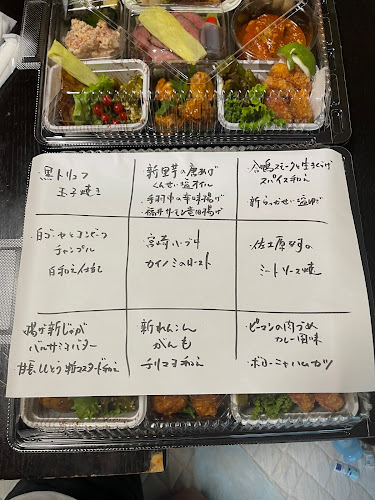 黒トリュフ
玉子焼き
新里芋の唐あげ
くんせい塩オイル
・手羽中の辛味揚げ
・福井サーモン竜田揚げ
合鴨スモークと生きくらげ
スパイス和え
・新らっかせい塩ゆで
白ゴーヤとコンビーフ
チャンプル
白和え仕立
・宮崎ハーブ牛
カイノミのロースト
・佐土原なすの
ミートソース焼
揚げ新じゃが
バルサミコバター
甘長とうとう 粒マスタード和え
新れんこん
がんも
チリマヨ和え
・ピーマンの肉づめ
カレー風味
・ボローニャハムカツ